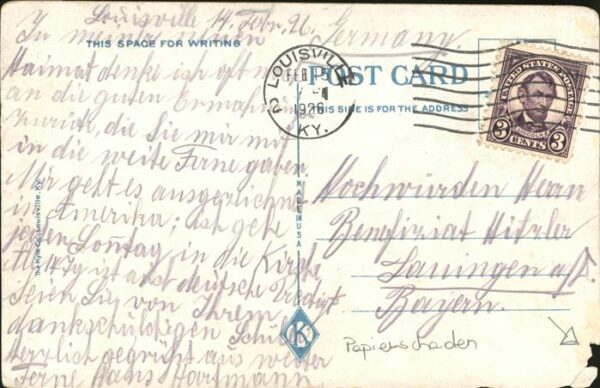 Louisville 14. Febr. 26.
Germany.
THIS SPACE FOR WRITING
POST CARD
THIS SIDE IS FOR THE ADDRESS
LOUISVILLE
FEB
1926
KY.
2
UNITED STATES POSTAGE
LINCOLN
3 CENTS 3
In meiner neuen
Heimat denke ich oft
an die guten Ermahnungen
zurück, die Sie mir mit
in die weite Ferne gaben.
Mir geht es ausgezeichnet
in Amerika; ich gehe
jeden Sonntag in die Kirche
ist auch deutsche Predigt
Seien Sie von Ihrem
dankschuldigen Schüler
Herzlich gegrüßt aus weiter
Ferne Hans Hartmann
MADE IN USA
K
Hochwürden Herrn
Benefiziat Hitzler
Lauingen a/D.
Bayern.
Papierschaden